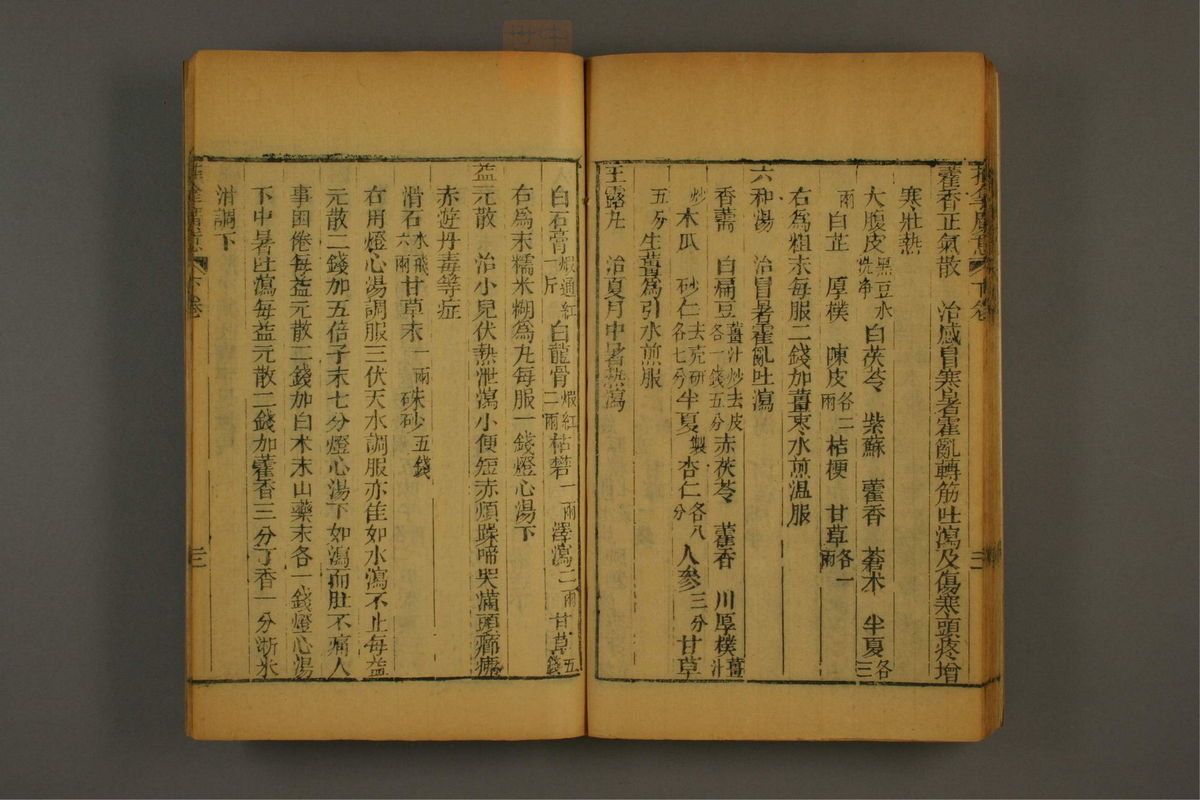 藿香正氣散　治感冒寒暑霍亂轉筋吐瀉及傷寒頭疼增
寒壯熱
大腹皮黑豆水洗净　白茯苓　紫蘇　藿香　蒼术　半夏各三
兩　白芷　厚樸　陳皮各二兩　桔梗　甘草各一兩
右為粗末每服二錢加薑棗水煎温服
六和湯　治冒暑霍亂吐瀉
香薷　白扁豆薑汁炒去皮各一錢五分　赤茯苓　藿香　川厚樸薑汁
炒　木瓜　砂仁去壳研各七分　半夏製　杏仁各八分　人參三分　甘草
五分　生薑為引水煎服
玉露丸　治夏月中暑熱瀉
白石膏煆通紅一斤　白龍骨煆紅二兩　枯礬一兩　澤瀉二兩　甘草五錢
右為末糯米糊為丸每服一錢燈心湯下
益元散　治小兒伏熱泄瀉小便短赤煩躁啼哭滿頭癤瘡
赤遊丹毒等症
滑石水飛六兩　甘草末一兩　硃砂五錢
右用燈心湯調服三伏天水調服亦佳如水瀉不止每益
元散二錢加五倍子末七分燈心湯下如瀉而肚不痛人
事困倦每益元散二錢加白术末山藥末各一錢燈心湯
下中暑吐瀉每益元散二錢加藿香三分丁香一分淅水
滑調下
下卷
三